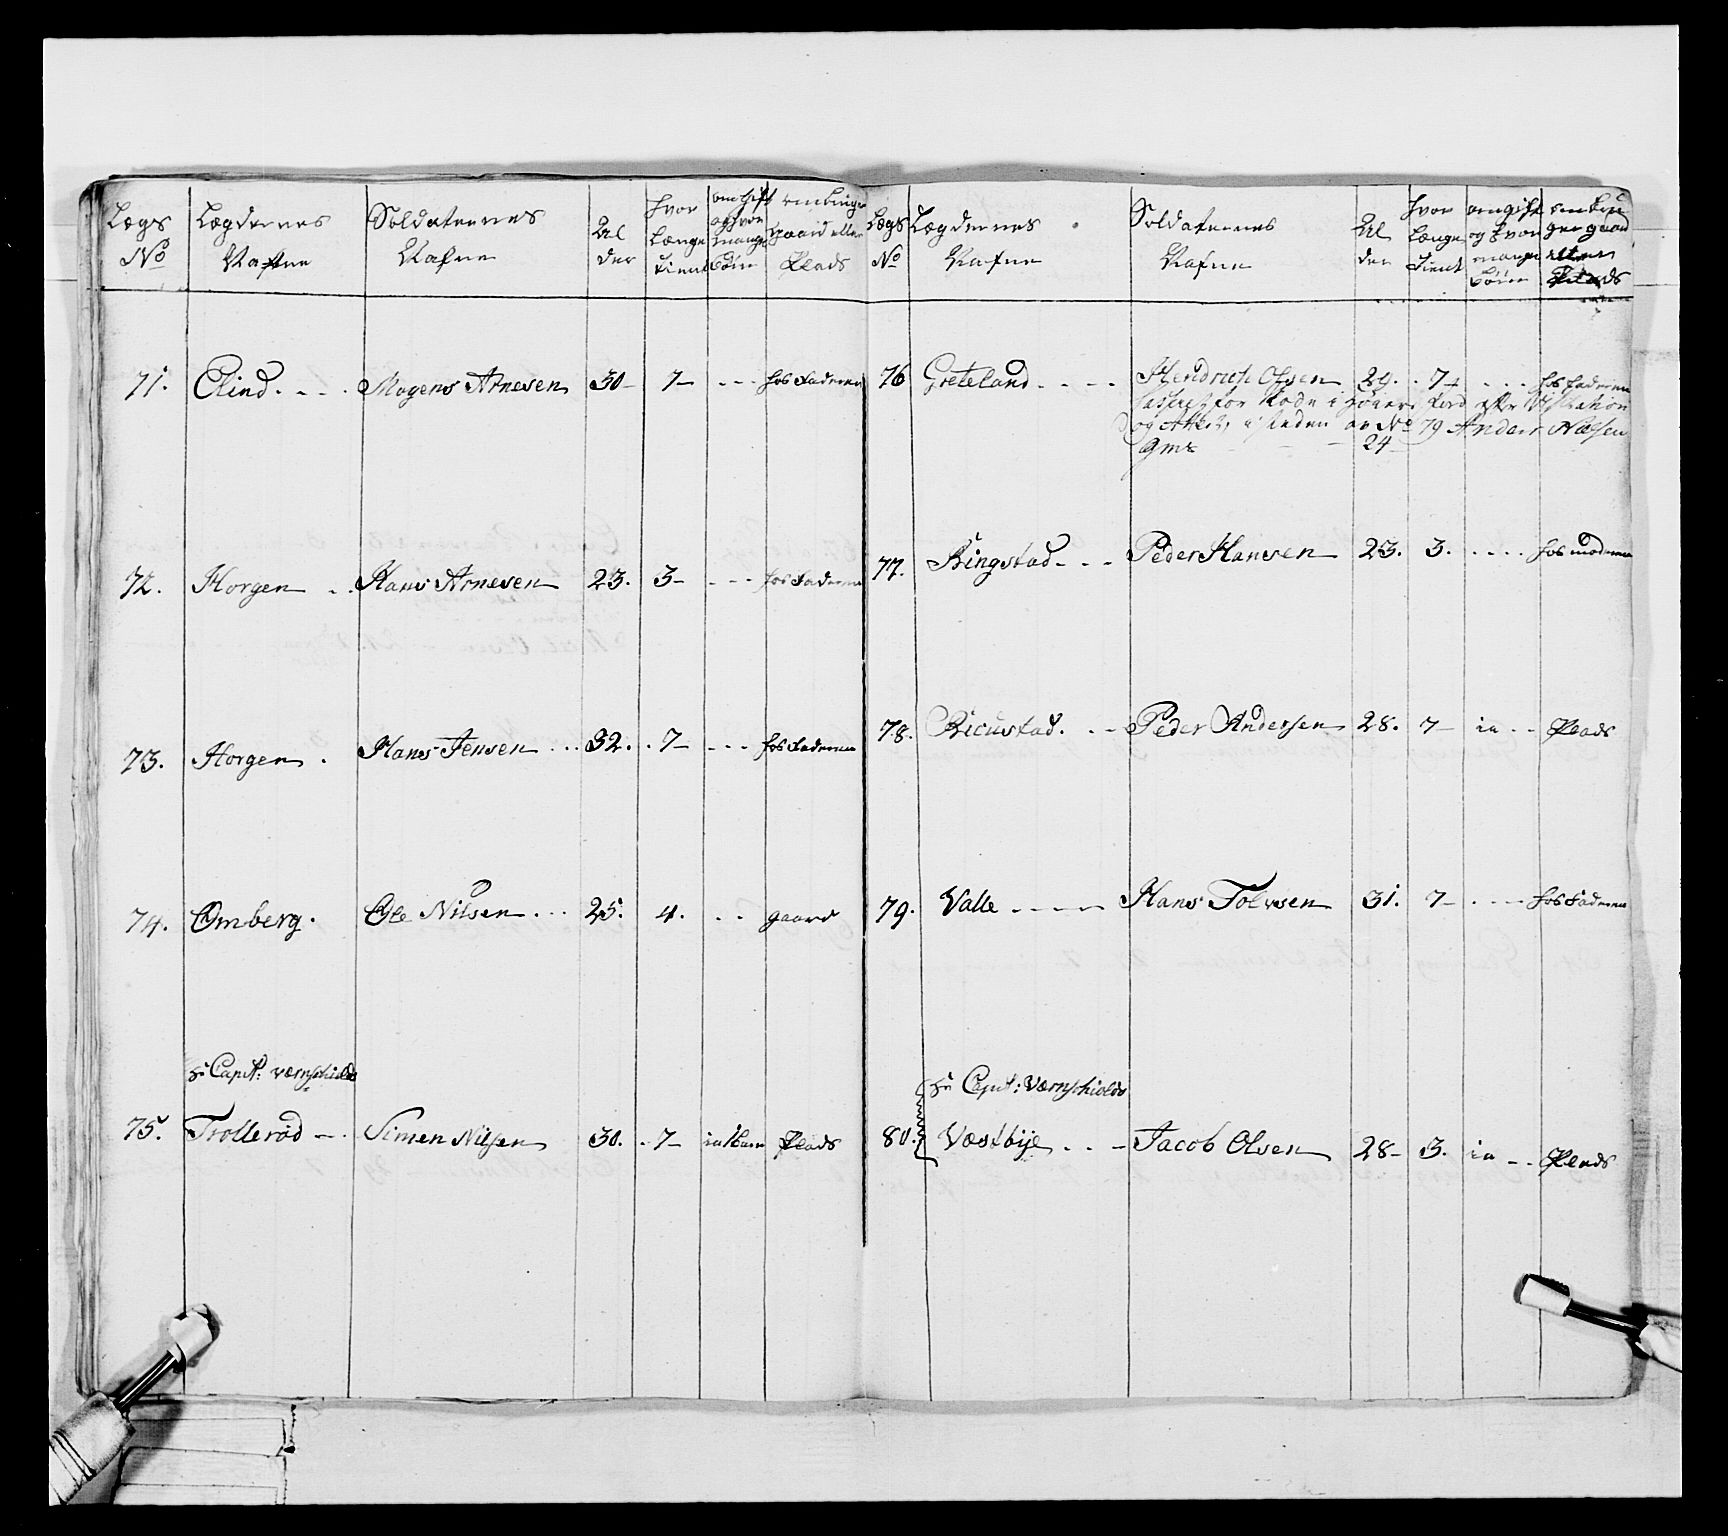 Lægs No
Lægdernes Nafne
Soldaternes Nafne
Alder
hvor Længe tient
om gift og hvor mange børn
om bruger gaard eller Plads
71. Elind. - - . Mogens Arnesen 30 - 7 - - - - hos Faderen
72. Horgen - . Hans Arnesen 23. 3 - - - - hos Faderen
73. Horgen . Hans Jensen . . . 32. . 7 - - - - hos Faderen
74. Omberg . Ole Nilsen . . . 25. 4. - - gaard
hr Capit: Værnschiolds
75. Trollerød - . Simen Nilsen 30. . 7 - ia 1 barn Plads
Lægs No
Lægdernes Nafne
Soldaternes Nafne
Alder
hvor Længe tient
om gift og hvor mange børn
om bruger gaard eller Plads
76 Greteland. - - - Hendrich Olsen 29. . 7 - . . . . hos faderen
i steden No 79 Anders
24
77. Ringstad - - - Peder Hansen 23. 3. . . . . hos moderen
78. Bicustad. - - Peder Andersen 28. 7 - ia - - Plads
79. Valle - - - - Hans Tolvsen 31. 7 - . - - - hos Faderen
hr Capit: Værnschiolds
80. Vestbÿe . . - Jacob Olsen 28 - 3. ia - - Plads